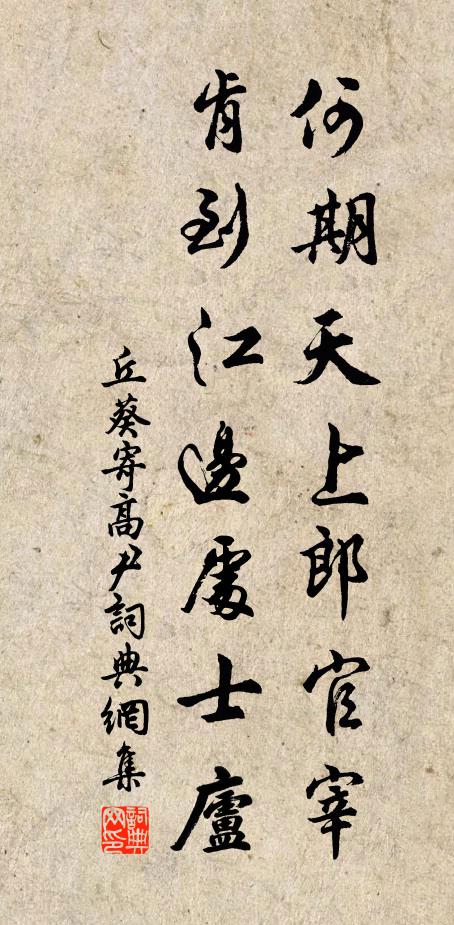 何期天上郎官宰
肯到江邊處士廬
丘葵寄高尹詞典網集
詞典網印